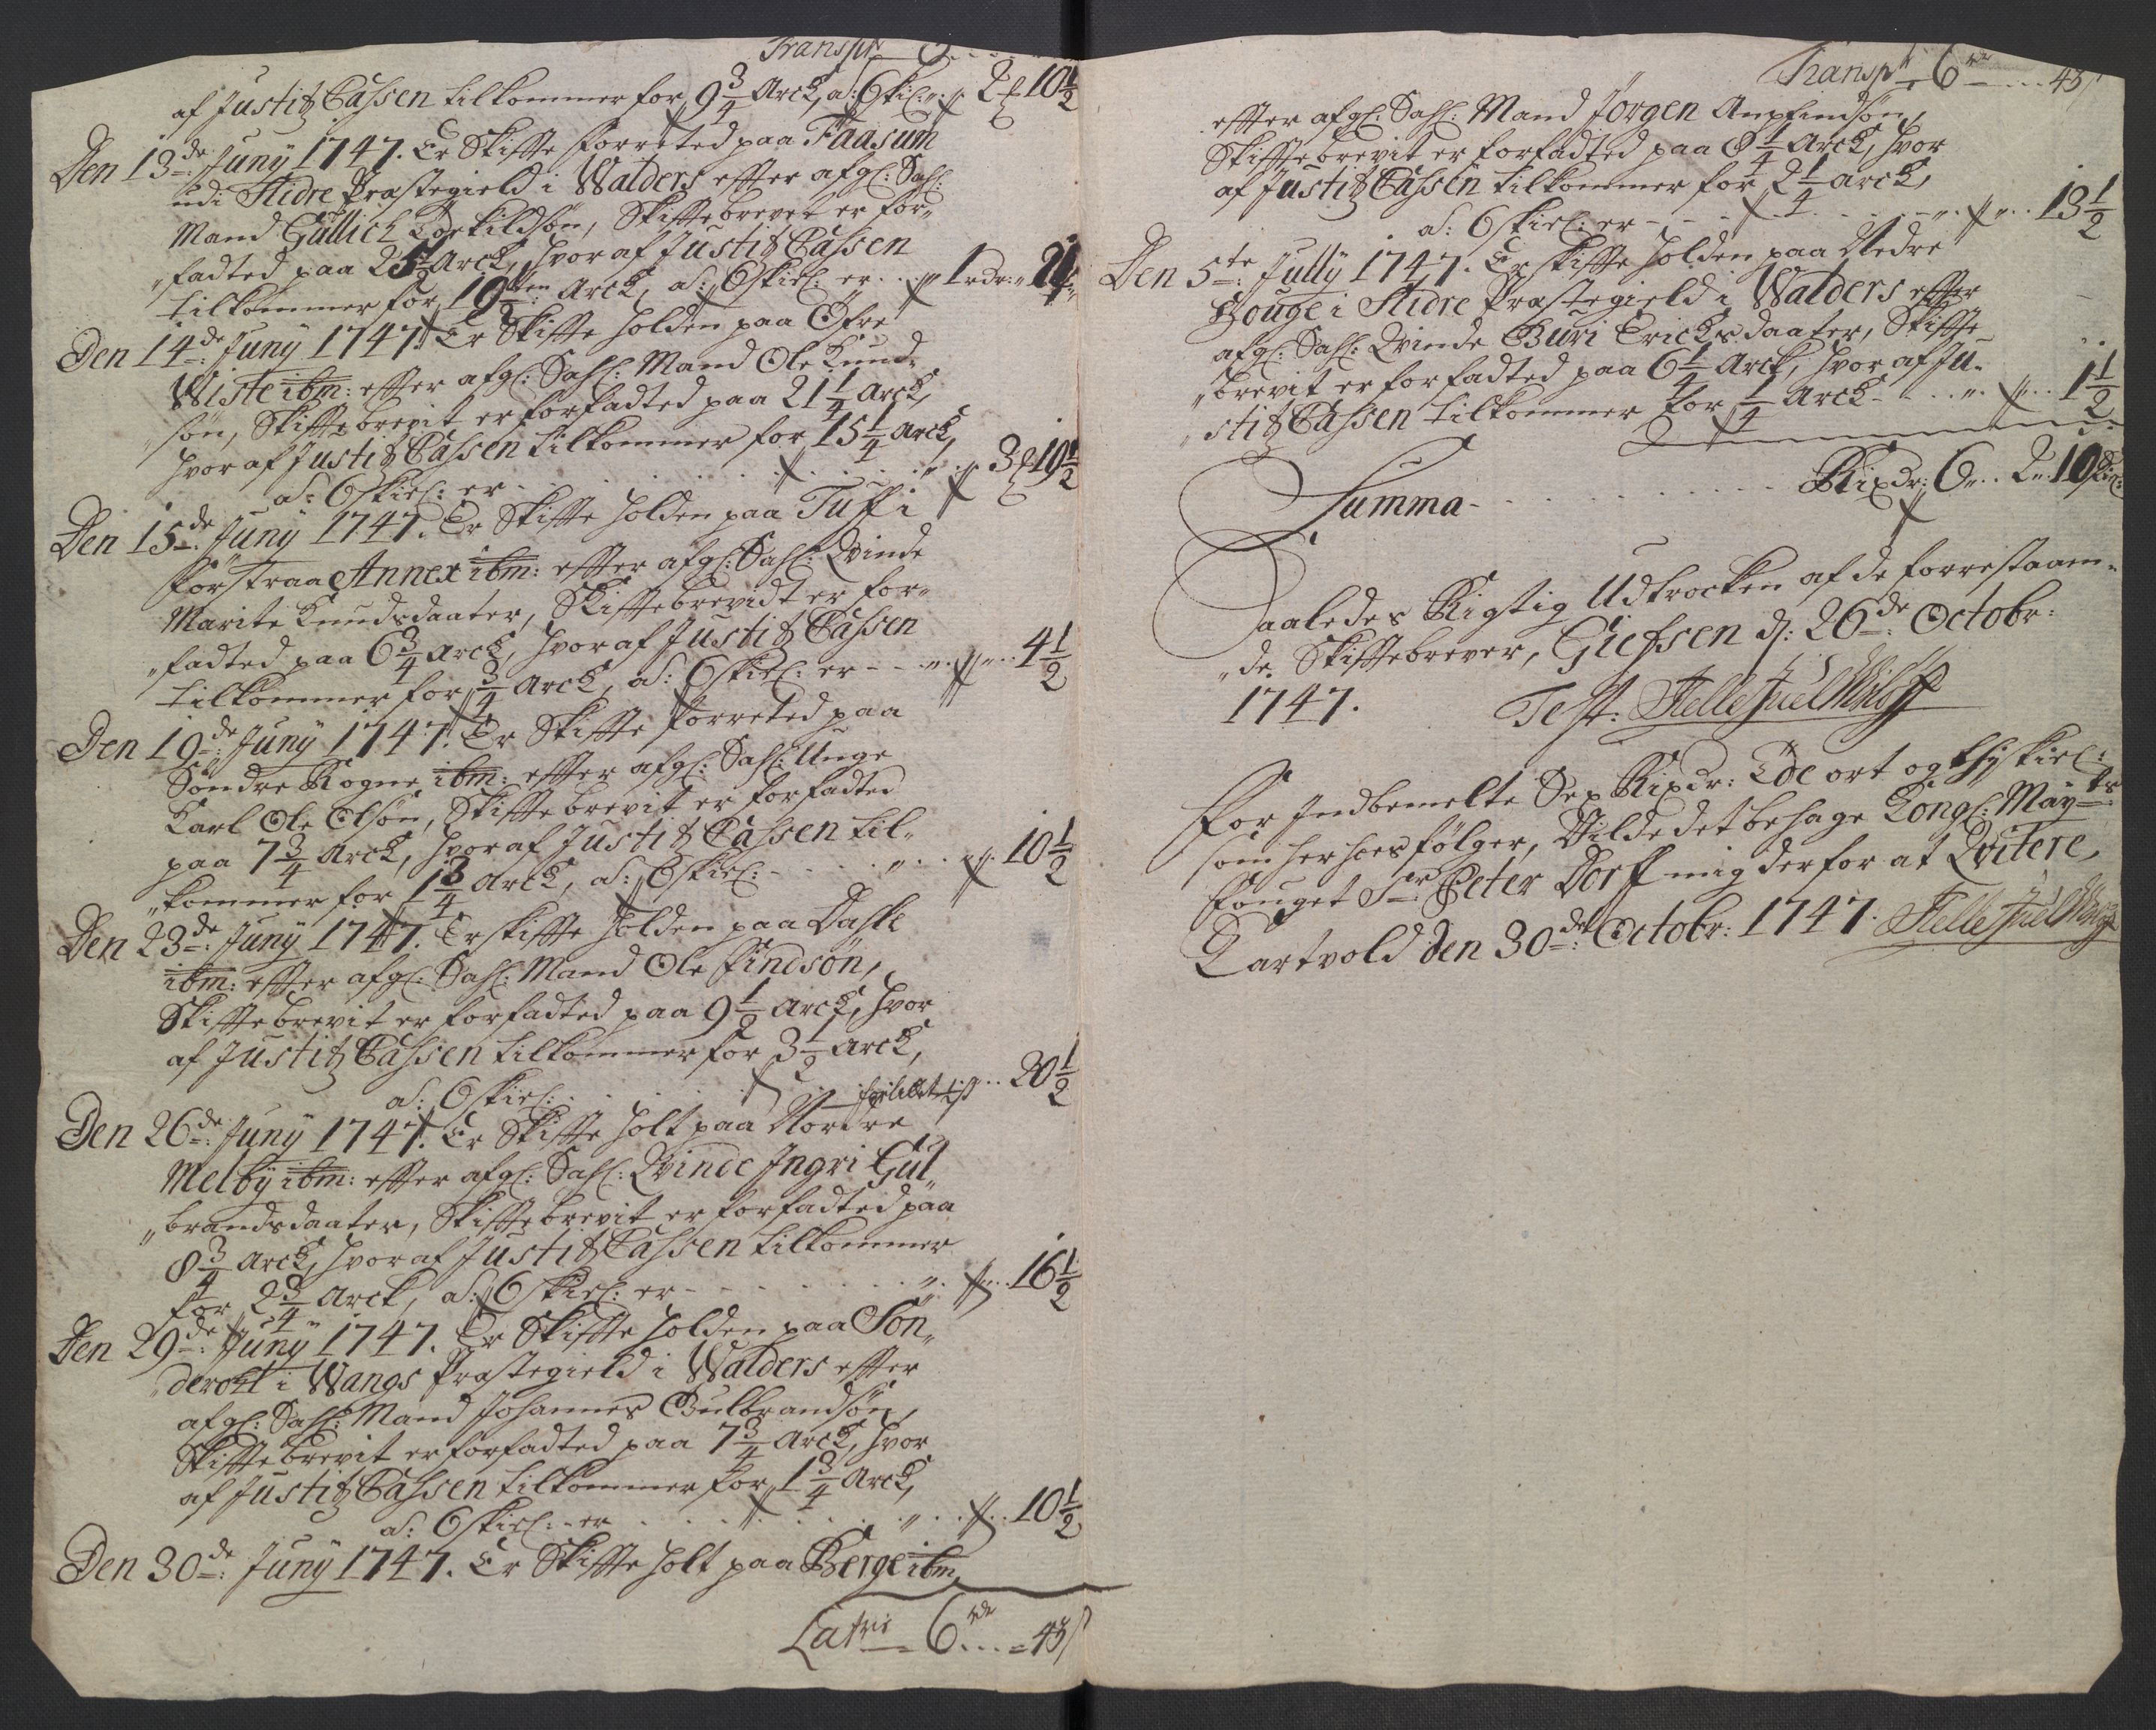 Transpt
af Justitz Cassen tilkommer for 9 3/4 Arck, a: 6 skil: 2 10 1/2
Den 13de: Juny 1747. Er Skifte forretted paa Faasum
udi Slidre Præstegield i Walders efter afgl: Sahl:
Mand Gullich Torkildsøn, Skiftebrevet er for„
„fadted paa Arck, hvor af Justitz Cassen
tilkommer for Arck, a: 6 skil: er 1 rdr:
Den 14de: Juny 1747. Er Skifte holden paa Øfre
Wiste ibm: efter afgl: Sahl: Mand Ole Knud„
„søn, Skiftebrevit er forfadted paa 21 1/4 Arck,
hvor af Justitz Cassen tilkommer for 15 1/4 Arck,
a: 6 skil: er 3 19 1/2
Den 15de: Juny 1747. Er Skifte holden paa Tuff i
forstraa Annex ibm: efter afgl: Sahl: Qvinde
Marite Knudsdaater, Skiftebrevidt er for„
„fadted paa 6 3/4 Arck, hvor af Justitz Cassen
tilkommer for 3/4 Arck, a: 6 skil: er 4 1/2
Den 19de: Juny 1747. Er Skifte forretted paa
Søndre Rogne ibm: efter afgl: Sahl: Unge
Karl Ole Olsøn, Skiftebrevit er forfadted
paa 7 3/4 Arck, hvor af Justitz Cassen til„
„kommer for 1 3/4 Arck, a: 6 skil: 10 1/2
Den 23de: Juny 1747. Er skifte holden paa Dahle
ibm: efter afgl: Sahl: Mand Ole Findsøn,
Skiftebrevit er forfadted paa 9 1/2 Arck, hvor
af Justitz Cassen tilkommer for 3 1/2 Arck,
a: 6 skil: 20 1/2
Den 26de: Juny 1747. Er Skifte holt paa Nordre
Melby ibm: efter afgl: Sahl: Qvinde Ingri Gul„
„brandsdaater, Skiftebrevit er forfadted paa
8 3/4 Arck, hvor af Justitz Cassen tilkommer
for 2 3/4 Arck, a: 6 skil: er 16 1/2
Den 29de: Juny 1747. Er Skifte holden paa Søn„
i Wangs Præstegield i Walders efter
afgl: Sahl: Mand Johannes Gulbrandsøn,
Skiftebrevit er forfadted paa 7 3/4 Arck, hvor
af Justitz Cassen tilkommer for 1 3/4 Arck,
a: 6 skil: er 10 1/2
Den 30de: Juny 1747. Er Skifte holt paa Berge ibm
Latris 6 rdr 43 s
Transpt 6 rdr 43 s
efter afgl: Sahl: Mand Jørgen Anpfindsøn,
Skiftebrevit er forfadted paa 8 1/4 Arck, hvor
af Justitz Cassen tilkommer for 2 1/4 Arck,
a: 6 skil: er 13 1/2
Den 5te: Jully 1747. Er skifte holden paa Nedre
Houge i Slidre Præstegield i Walders efter
afgl: Sahl: Qvinde Guri Ericksdaater, Skifte
„brevit er forfadted paa 6 1/4 Arck, hvor af Ju„
„stitz Cassen tilkommer for 1/4 Arck 1 1/2
Summa Rixdr: 6 2 10 skil:
Saaledes Rigtig Udtrocken af de forrestaaen„
„de Skiftebrever, Giefsen d: 26de: Octobr:
1747. Test:
For Indbemelte Sex Rixdr: Toe ort og thj skil:
som her hoes følger, Vilde det behage Kongl: Mayts:
Fouget Sr: Peter Dorff mig derfor at Qvitere,
Tartvold den 30de: Octobr: 1747.